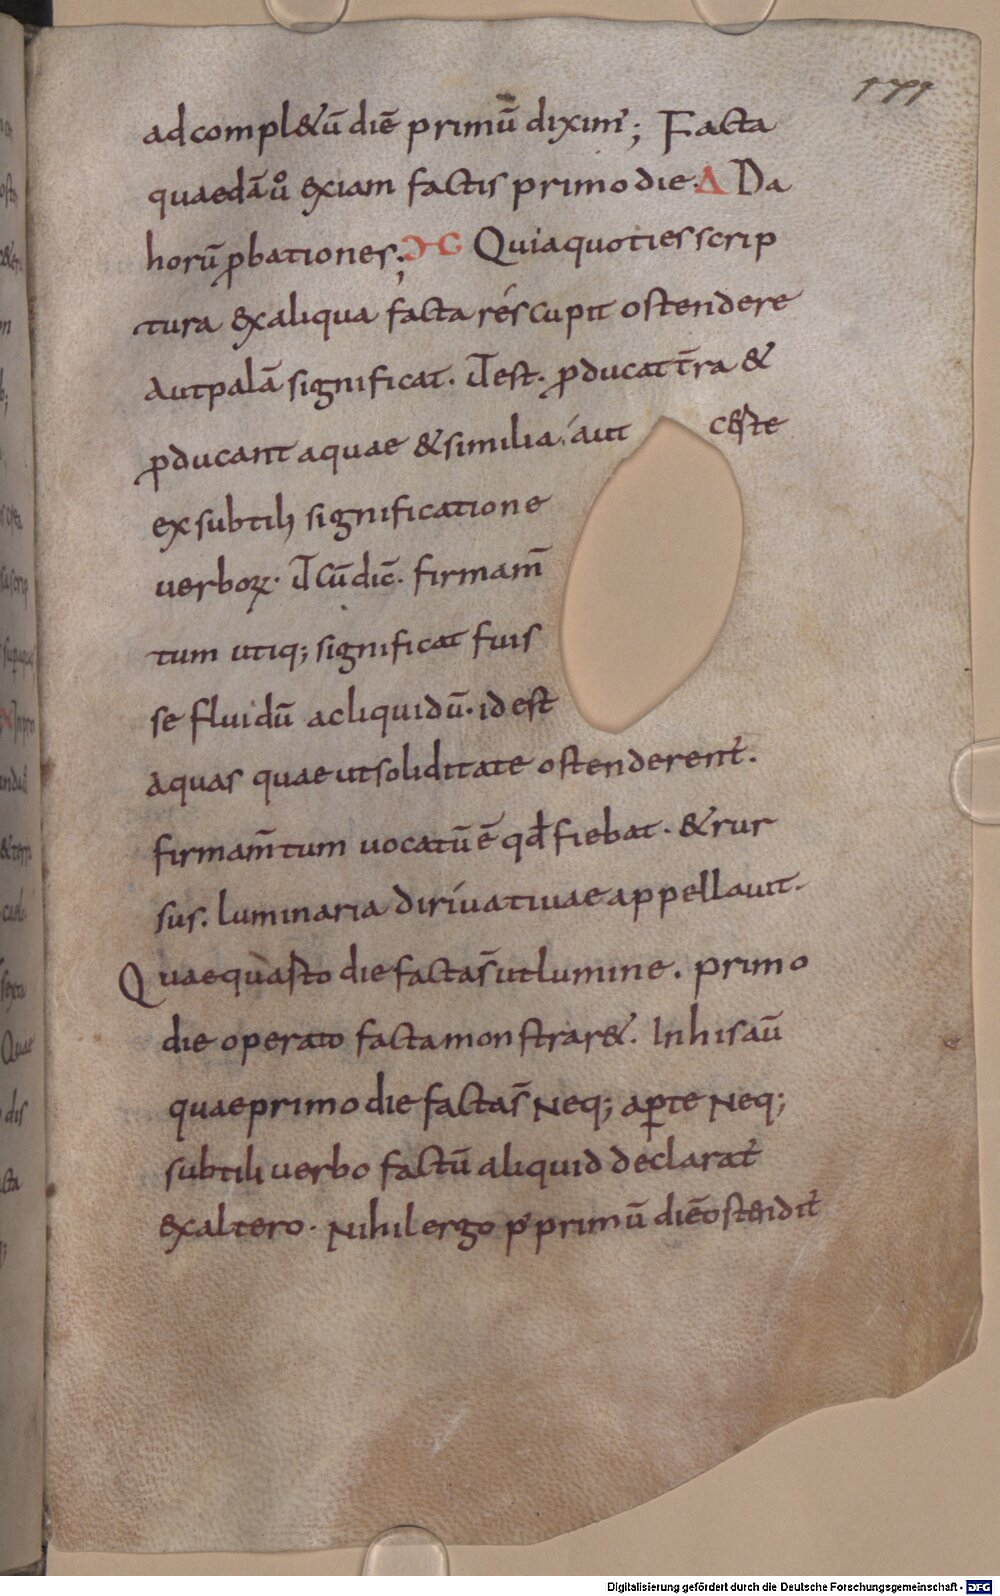 179
ad compl&ū diē primū dixim'; Facta
quaedā ů exiam factis primo die. Δ Da
horū ꝓbationes; ϽC Quia quoties scrip
tura ex aliqua facta rés cupit ostendere
Aut palā significat. Ut est. ꝓducat t̄ra &
ꝓducant aquae & similia. aut certe
ex subtili significatione
verboꝝ. Ut cū dic̄. firmam̄
tum utiq; significat fuis
se fluidū ac liquidū. id est
Aquas quae ut soliditate ostenderent'.
firmam̄tum vocatū ē qđ fiebat. & rur
sus. luminaria dirivativae appellavit.
Quae quarto die factas̄ ut lumine. primo
die operato facta monstrar&. In his aū
quae primo die factas̄ Neq; aꝑte Neq;
subtili verbo factū aliquid declarat'
ex altero. Nihil ergo p' primū diē ostendit'
Digitalisierung gefördert durch die Deutsche Forschungsgemeinschaft - DFG